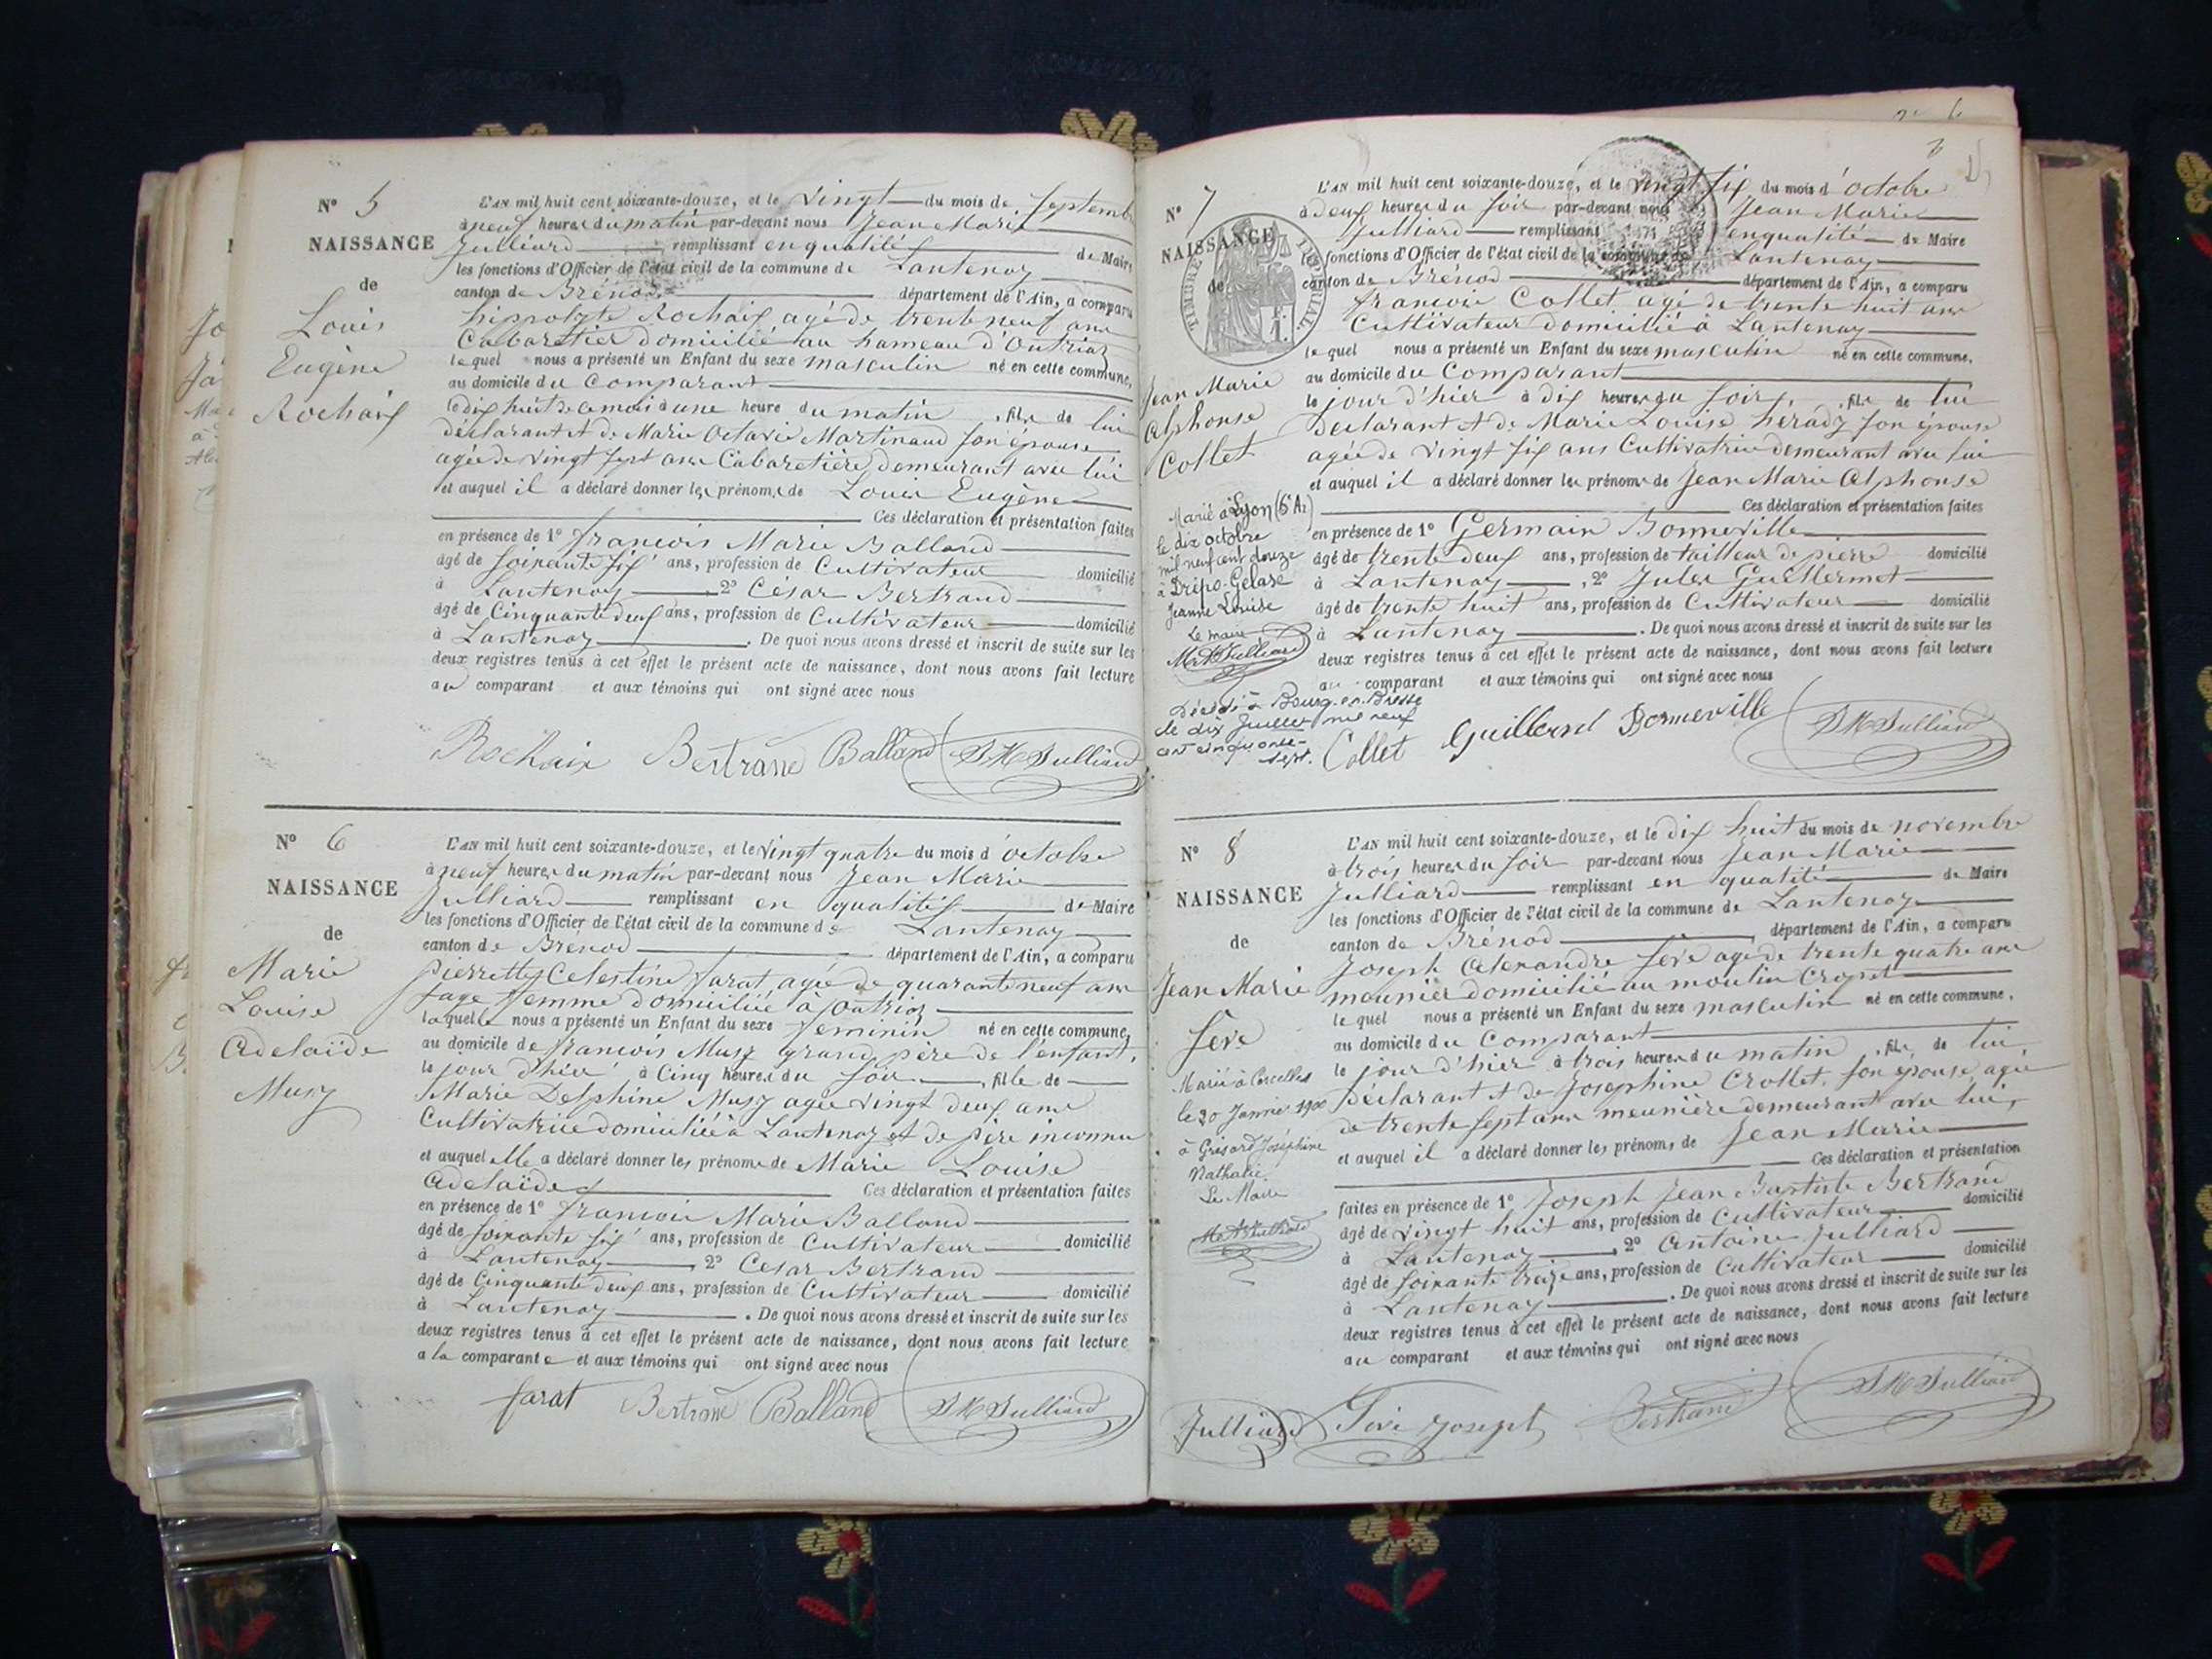 Nº 5
NAISSANCE
de
Louis
Eugène
Rochaix
L'AN mil huit cent soixante-douze, et le vingt du mois de septembre
à neuf heures du matin par-devant nous Jean Marie
Julliard remplissant en qualité de Maire
les fonctions d'Officier de l'état civil de la commune de Lantenay
canton de Brénod département de l'Ain, a comparu
hippolyte Rochaix agé de trente neuf ans
Cabaretier domicilié au hameau d'Outriaz
lequel nous a présenté un Enfant du sexe masculin né en cette commune,
au domicile du Comparant
le dix huit de ce mois à une heure du matin, fils de lui
déclarant et de Marie Octavie Martinand son épouse
agée de vingt sept ans Cabaretière demeurant avec lui
et auquel il a déclaré donner les prénoms de Louis Eugène
Ces déclaration et présentation faites
en présence de 1º françois Marie Balland
âgé de soixante six ans, profession de Cultivateur domicilié
à Lantenay, 2º César Bertrand
âgé de Cinquante deux ans, profession de Cultivateur domicilié
à Lantenay. De quoi nous avons dressé et inscrit de suite sur les
deux registres tenus à cet effet le présent acte de naissance, dont nous avons fait lecture
au comparant et aux témoins qui ont signé avec nous
Rochaix Bertrand Balland JM Julliard
Nº 6
NAISSANCE
de
Marie
Louise
Adelaïde
Musy
L'AN mil huit cent soixante-douze, et le vingt quatre du mois d'octobre
à neuf heures du matin par-devant nous Jean Marie
Julliard remplissant en qualité de Maire
les fonctions d'Officier de l'état civil de la commune de Lantenay
canton de Brénod département de l'Ain, a comparu
pierrette Celestine farat, agée de quarante neuf ans
sage femme domiciliée à Outriaz
laquelle nous a présenté un Enfant du sexe feminin né en cette commune,
au domicile de françois Musy grand père de l'enfant,
le jour d'hier à Cinq heures du soir, fille de
Marie Delphine Musy agée vingt deux ans
Cultivatrice domiciliée à Lantenay et de père inconnu
et auquel elle a déclaré donner les prénoms de Marie Louise
Adelaïde Ces déclaration et présentation faites
en présence de 1º françois Marie Balland
âgé de soixante six ans, profession de Cultivateur domicilié
à Lantenay, 2º César Bertrand
âgé de Cinquante deux ans, profession de Cultivateur domicilié
à Lantenay. De quoi nous avons dressé et inscrit de suite sur les
deux registres tenus à cet effet le présent acte de naissance, dont nous avons fait lecture
a la comparante et aux témoins qui ont signé avec nous
farat Bertrand Balland JM Julliard
Nº 7
NAISSANCE
de
TIMBRE IMPÉRIAL
Jean Marie
Alphonse
Collet
Marié à Lyon (6e Ar)
le dix octobre
mil neuf cent douze
à Drépo-Gelase
Jeanne Louise
Le maire
Décédé à Bourg-en-Bresse
le dix Juillet mil neuf
cent cinquante-
sept.
L'AN mil huit cent soixante-douze, et le vingt six du mois d'octobre
à deux heures du soir par-devant nous Jean Marie
Julliard remplissant en qualité de Maire
les fonctions d'Officier de l'état civil de la commune de Lantenay
canton de Brénod département de l'Ain, a comparu
françois Collet agé de trente huit ans
Cultivateur domicilié à Lantenay
lequel nous a présenté un Enfant du sexe masculin né en cette commune,
au domicile du Comparant
le jour d'hier à dix heures du soir, fils de lui
déclarant et de Marie Louise herady son épouse
agée de vingt six ans Cultivatrice demeurant avec lui
et auquel il a déclaré donner les prénoms de Jean Marie Alphonse
Ces déclaration et présentation faites
en présence de 1º Germain Bonneville
âgé de trente deux ans, profession de tailleur de pierre domicilié
à Lantenay, 2º Jules Guillermet
âgé de trente huit ans, profession de Cultivateur domicilié
à Lantenay. De quoi nous avons dressé et inscrit de suite sur les
deux registres tenus à cet effet le présent acte de naissance, dont nous avons fait lecture
au comparant et aux témoins qui ont signé avec nous
Collet Bonneville JM Julliard
Nº 8
NAISSANCE
de
Jean Marie
Sève
Marié à Corcelles
le 20 Janvier 1900
à Grisard Joséphine
Nathalie
Le Maire
L'AN mil huit cent soixante-douze, et le dix huit du mois de novembre
à trois heures du soir par-devant nous Jean Marie
Julliard remplissant en qualité de Maire
les fonctions d'Officier de l'état civil de la commune de Lantenay
canton de Brénod département de l'Ain, a comparu
Joseph Alexandre Sève agé de trente quatre ans
meunier domicilié au moulin Crozet
lequel nous a présenté un Enfant du sexe masculin né en cette commune,
au domicile du Comparant
le jour d'hier à trois heures du matin, fils de lui
Déclarant et de Josephine Crollet son épouse, agée
de trente sept ans meunière demeurant avec lui,
et auquel il a déclaré donner les prénoms de Jean Marie
Ces déclaration et présentation
faites en présence de 1º Joseph Jean Baptiste Bertrand
âgé de vingt huit ans, profession de Cultivateur domicilié
à Lantenay, 2º Antoine Julliard
âgé de soixante treize ans, profession de Cultivateur domicilié
à Lantenay. De quoi nous avons dressé et inscrit de suite sur les
deux registres tenus à cet effet le présent acte de naissance, dont nous avons fait lecture
au comparant et aux témoins qui ont signé avec nous
Julliard Sève Joseph Bertrand JM Julliard